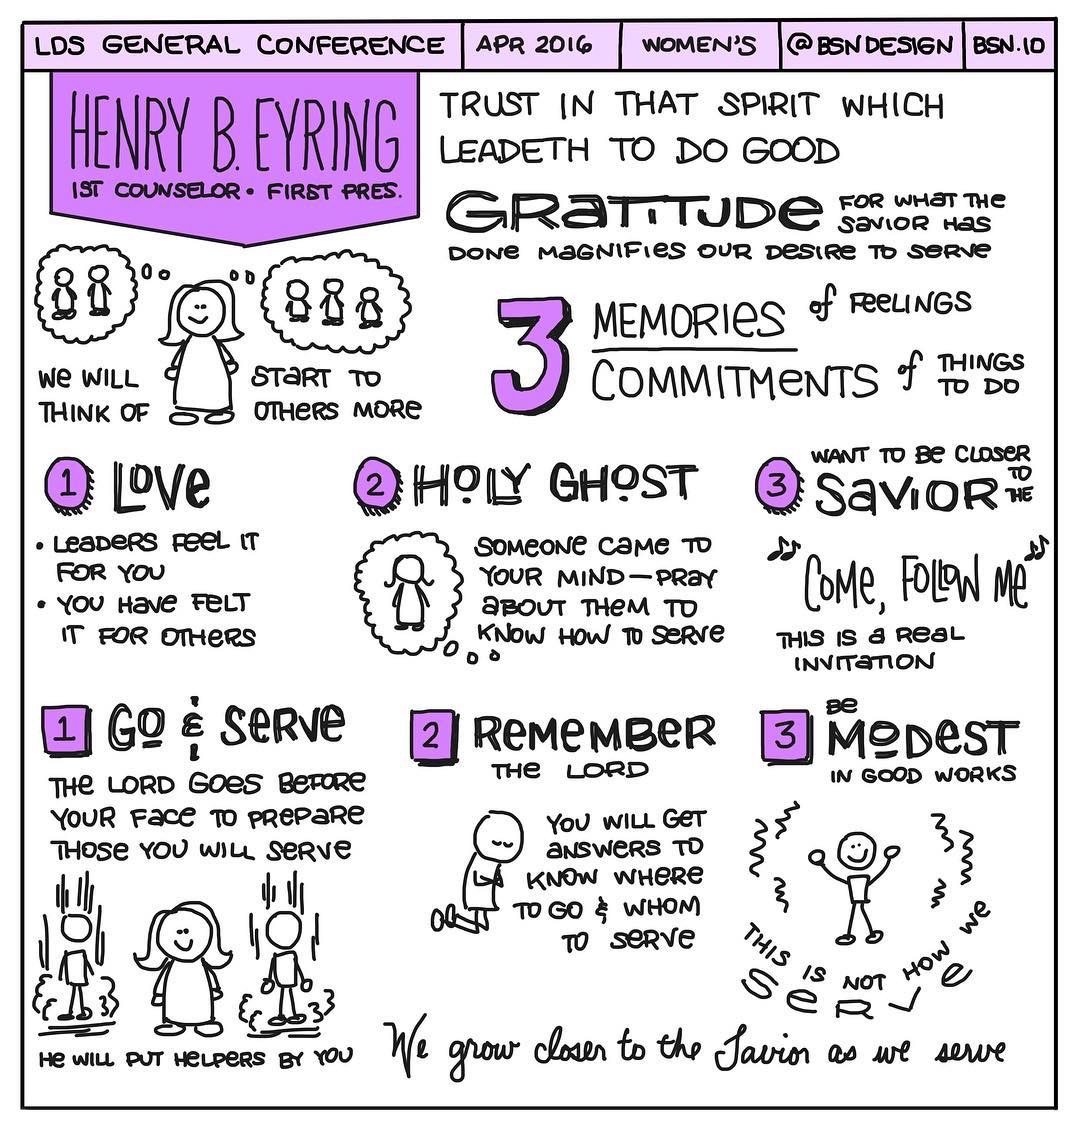 LDS GENERAL CONFERENCE
APR 2016
WOMEN'S
@BSNDESIGN
BSN.IO
HENRY B. EYRING
1ST COUNSELOR • FIRST PRES.
TRUST IN THAT SPIRIT WHICH
LEADETH TO DO GOOD
GRATITUDE FOR WHAT THE
SAVIOR HAS
DONE MAGNIFIES OUR DESIRE TO SERVE
WE WILL START TO
THINK OF OTHERS MORE
3 MEMORIES of FEELINGS
COMMITMENTS of THINGS
TO DO
1 LOVE
• LEADERS FEEL IT
FOR YOU
• YOU HAVE FELT
IT FOR OTHERS
2 HOLY GHOST
SOMEONE CAME TO
YOUR MIND—PRAY
ABOUT THEM TO
KNOW HOW TO SERVE
3 WANT TO BE CLOSER
TO
SAVIOR THE
"COME, FOLLOW ME"
THIS IS A REAL
INVITATION
1 GO & SERVE
THE LORD GOES BEFORE
YOUR FACE TO PREPARE
THOSE YOU WILL SERVE
HE WILL PUT HELPERS BY YOU
2 REMEMBER
THE LORD
YOU WILL GET
ANSWERS TO
KNOW WHERE
TO GO & WHOM
TO SERVE
3 BE
MODEST
IN GOOD WORKS
THIS IS NOT HOW WE
SERVE
We grow closer to the Savior as we serve